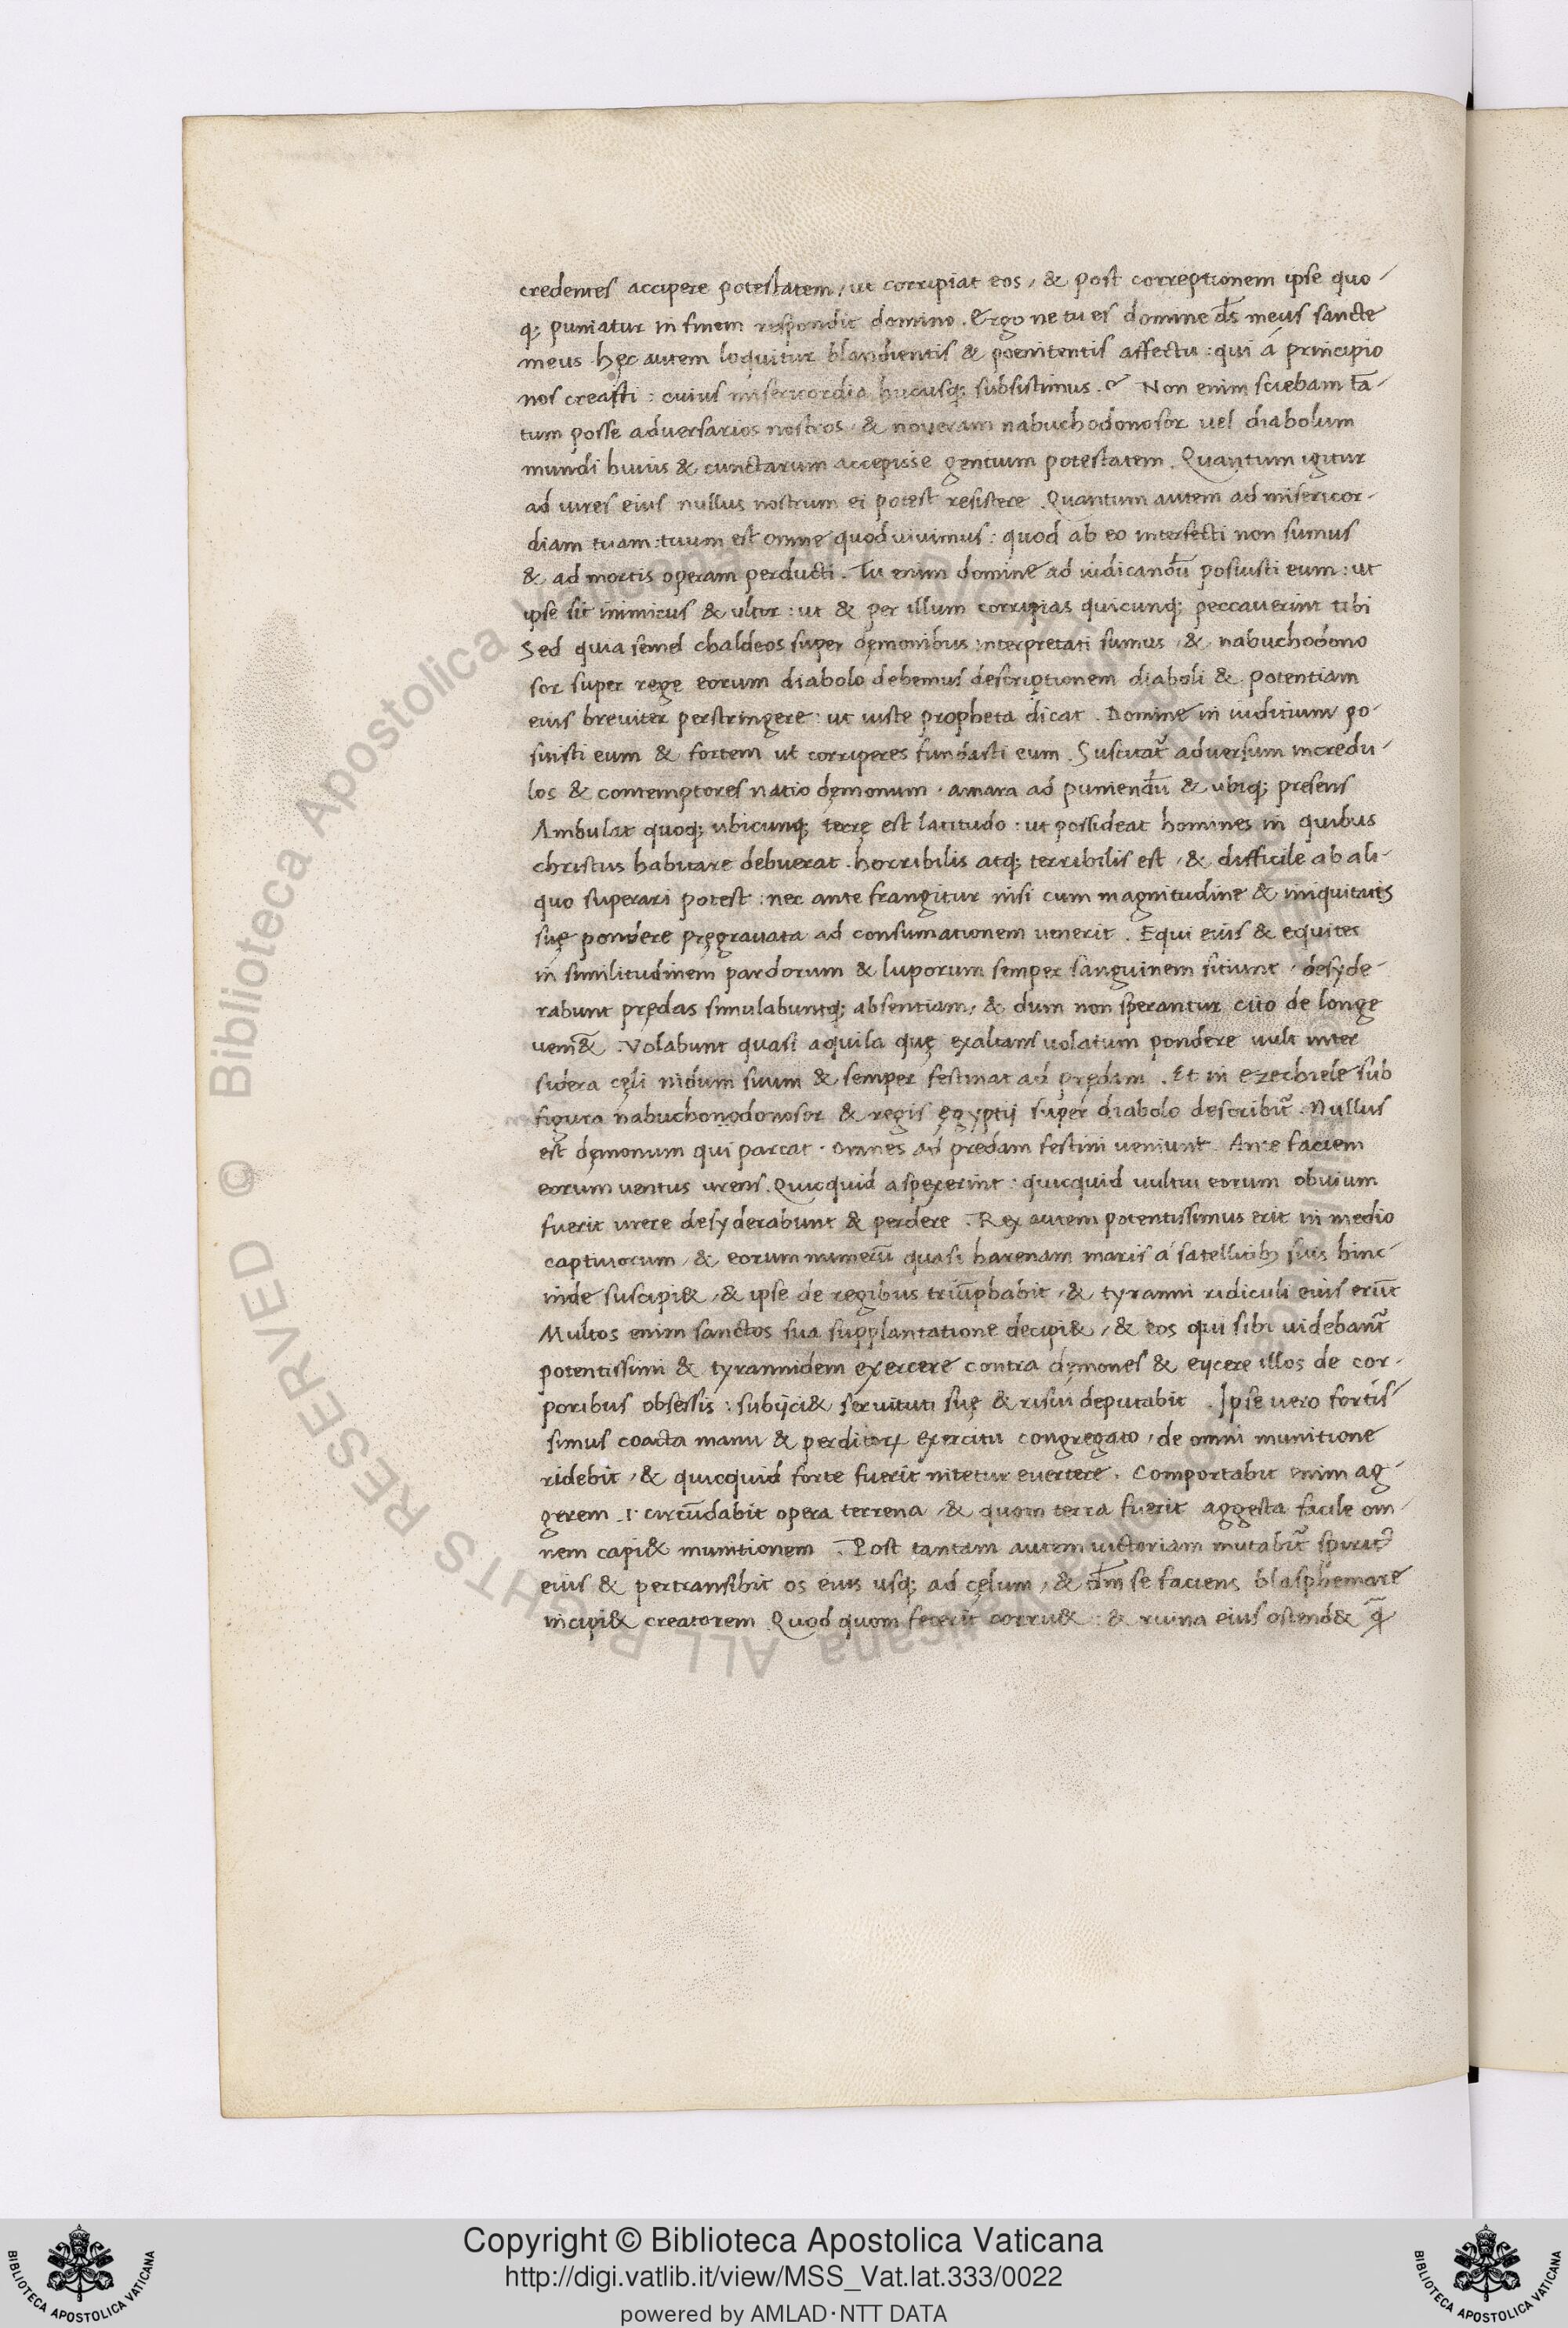 credentes accipere potestatem, ut corripiat eos, & post correptionem ipse quo-
q; puniatur in finem respondit domino. Ergo ne tu es domine ds̄ meus sancte
meus hęc autem loquitur blandientis & poenitentis affectu : qui á principio
nos creasti : cuius misericordia hucusq; subsistimus.? Non enim sciebam tā-
tum posse adversarios nostros, & noveram nabuchodonosor vel diabolum
mundi huius & cunctarum accepisse gentium potestatem. Quantum igitur
ad vires eius nullus nostrum ei potest resistere. Quantum autem ad misericor-
diam tuam : tuum est omne quod vivimus : quod ab eo interfecti non sumus
& ad mortis operam perducti. Tu enim domine ad iudicandū posuisti eum : ut
ipse sit inimicus & ultor : ut & per illum corripias quicunq; peccaverint tibi
Sed quia semel chaldeos super dęmonibus interpretati sumus, & nabuchodono
sor super rege eorum diabolo debemus descriptionem diaboli & potentiam
eius breviter perstringere : ut iuste propheta dicat. Domine in iudicium po-
suisti eum & fortem ut corriperes fundasti eum. Suscitat̄ adversum incredu-
los & contemptores natio dęmonum. amara ad puniendū & ubiq; presens
Ambulat quoq; ubicunq; terrę est latitudo : ut possideat homines in quibus
christus habitare debuerat. horribilis atq; terribilis est, & difficile ab ali-
quo superari potest : nec ante frangitur nisi cum magnitudine & iniquitatis
suę pondere pręgravata ad consumationem venerit. Equi eius & equites
in similitudinem pardorum & luporum semper sanguinem sitiunt, desyde-
rabunt prędas simulabuntq; absentiam, & dum non sperantur cito de longe
veni&. Volabunt quasi aquila quę exaltans volatum pondere vult inter
sidera cęli nidum suum & semper festinat ad prędam. Et in ezechiele sub
figura nabuchonodonosor & regis ęgyptij super diabolo describit̄. Nullus
est dęmonum qui parcat. omnes ad predam festini veniunt. Ante faciem
eorum ventus urens. Quicquid aspexerint : quicquid vultui eorum obvium
fuerit urere desyderabunt & perdere. Rex autem potentissimus erit in medio
captivorum, & eorum numerū quasi harenam maris á satellitib; suis hinc
inde suscipi&, & ipse de regibus triūphabit, & tyranni ridiculi eius erūt
Multos enim sanctos sua supplantatione decipi&, & eos qui sibi videbant̄
potentissimi & tyrannidem exercere contra dęmones & eijcere illos de cor-
poribus obsessis : subijci& servituti suę & risui deputabit. Ipse vero fortis-
simus coacta manu & perditoꝝ exercitu congregato, de omni munitione
ridebit, & quicquid forte fuerit nitetur evertere. Comportabit enim ag-
gerem .i. circūdabit opera terrena, & quom terra fuerit aggesta facile om-
nem capi& munitionem. Post tantam autem victoriam mutabit̄ spirit᾽
eius & pertransibit os eius usq; ad cęlum, & dm̄ se faciens blasphemare
incipi& creatorem. Quod quom fecerit corru& : & ruina eius ostend& ꝙ̄
Copyright © Biblioteca Apostolica Vaticana
http://digi.vatlib.it/view/MSS_Vat.lat.333/0022
powered by AMLAD·NTT DATA
BIBLIOTECA APOSTOLICA VATICANA
BIBLIOTECA APOSTOLICA VATICANA
© Biblioteca Apostolica Vaticana ALL RIGHTS RESERVED